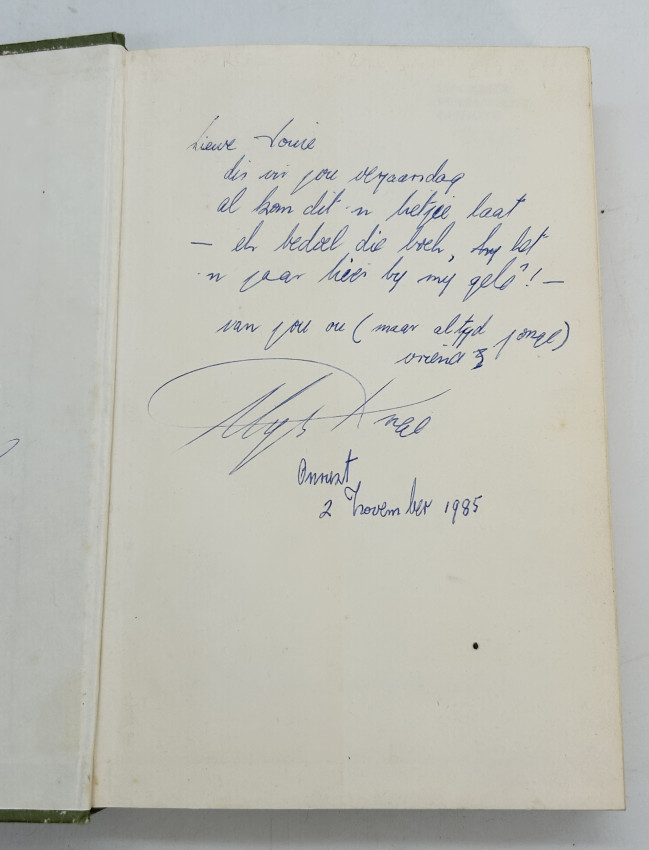 Liewe Louie
dis vir jou verjaarsdag
al kom dit 'n bietjie laat
— ek bedoel die boek, hy het
'n jaar hier by my gelê! —
van jou ou (maar altyd jonge)
vriend
Onrust
2 November 1985